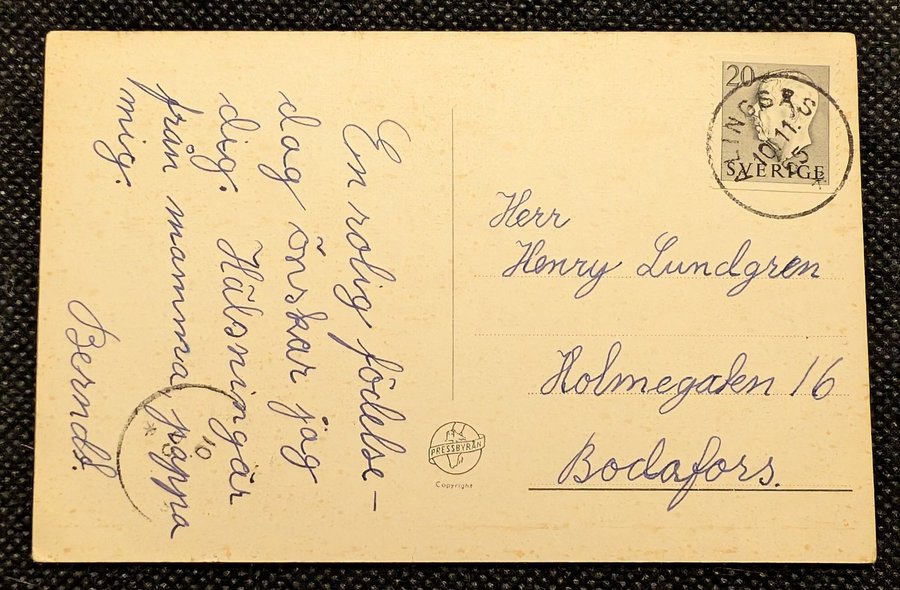 En rolig födelse-
dag önskar jag
dig. Hälsningar
från mamma pappa
mig.
20
SVERIGE
ALINGSÅS
10.11
Herr
Henry Lundgren
Holmegaten 16
Bodafors.
PRESSBYRÅN
Copyright